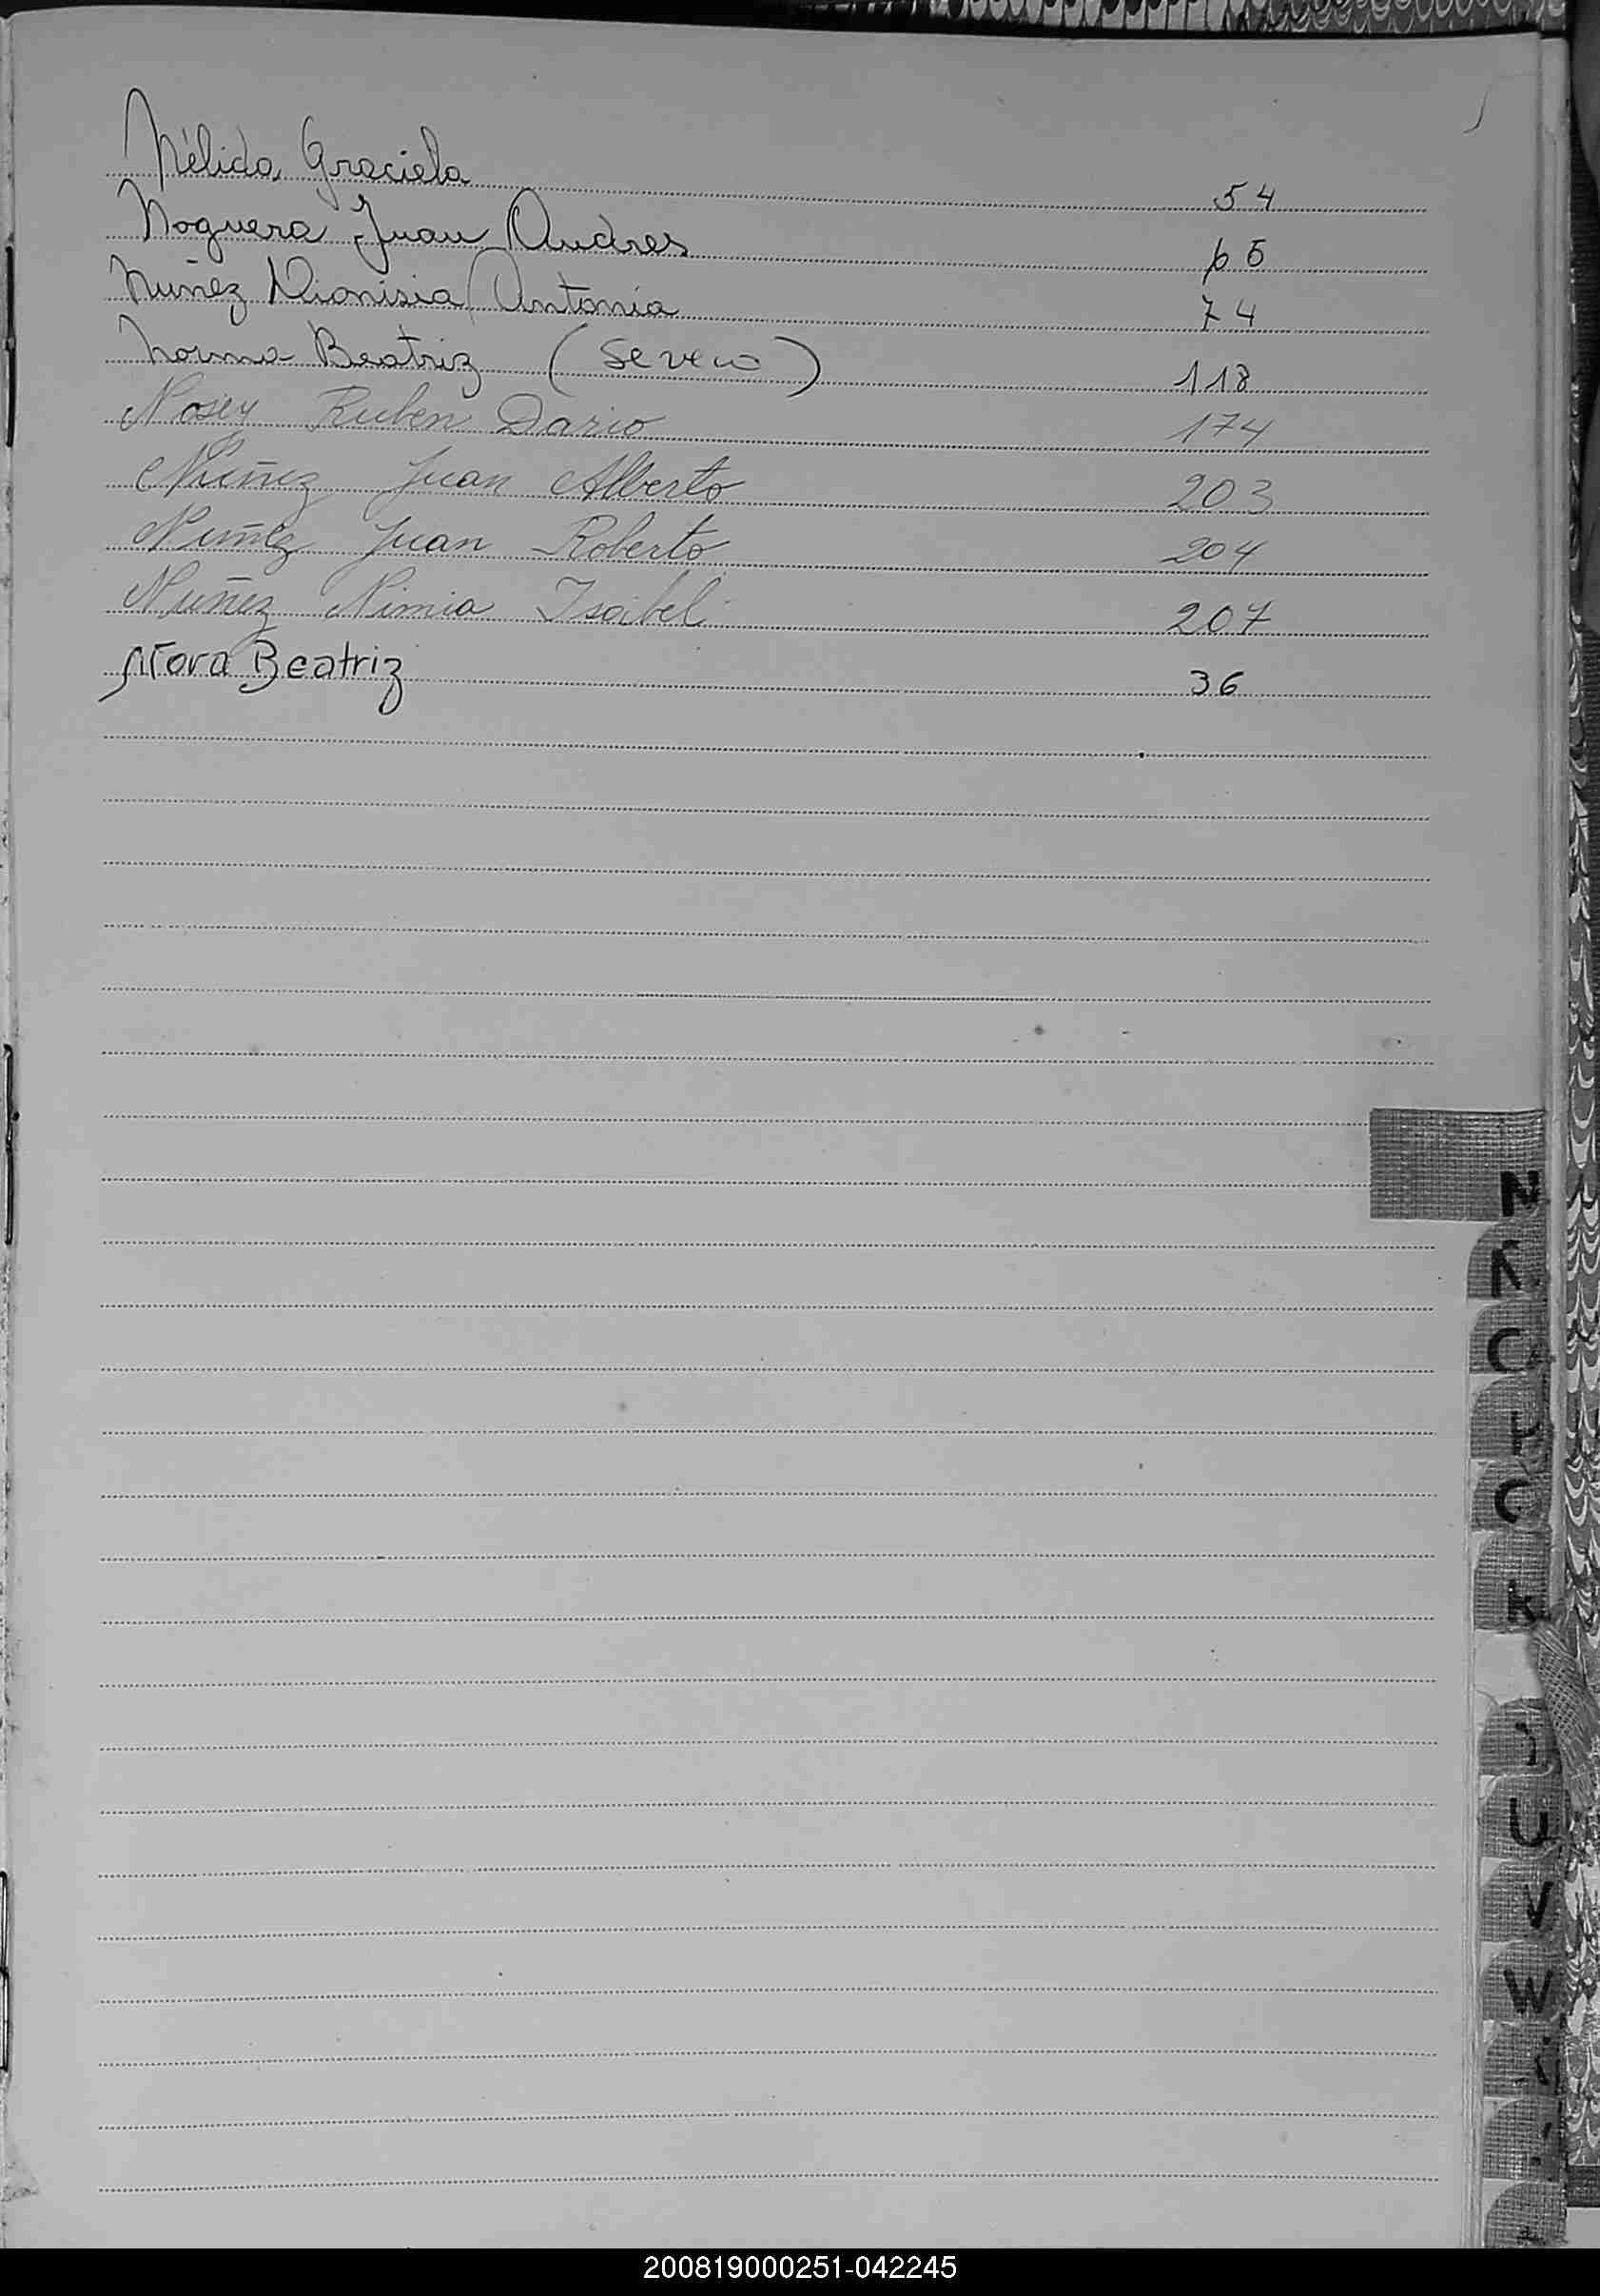 Nélida Graciela 54
Noguera Juan Andres 65
Nuñez Dionisia Antonia 74
Norma Beatriz 118
Nosey Ruben Dario 174
Nuñez Juan Alberto 203
Nuñez Juan Roberto 204
Nuñez Nimia Isabel 207
Nora Beatriz 36
N
U
V
W
200819000251-042245